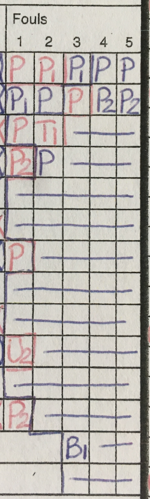 Fouls
1 2 3 4 5
P P1 P1 P P
P1 P P P2 P2
P T1
P2 P
P
U2
P2
B1